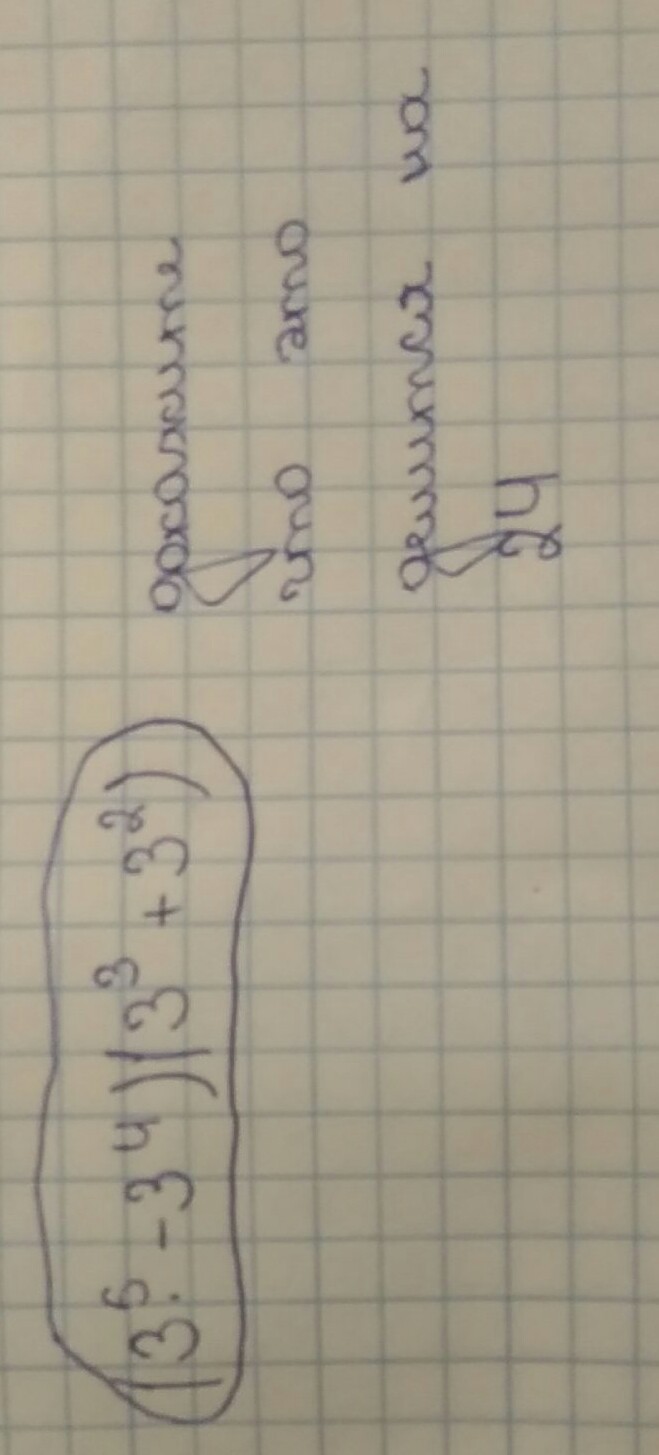 (3⁵ - 3⁴)(3³ + 3²)
докажите
что это
делится на
24